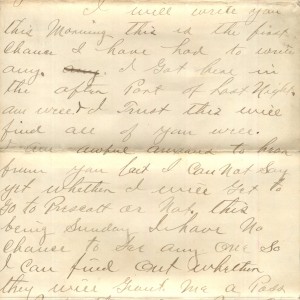 I will write you
this Morning this is the first
Chance I have had to write
any. any. I Got hear in
the after Part of Last Night.
am well & I Trust this will
find all of you well.
I am awful anxious to hear
from you but I Can Not Say
yet whether I will Get to
Go to Prescott or Not. this
being Sunday I have No
Chance to See any one So
I Can find out whether
they will Grant Me a Pass